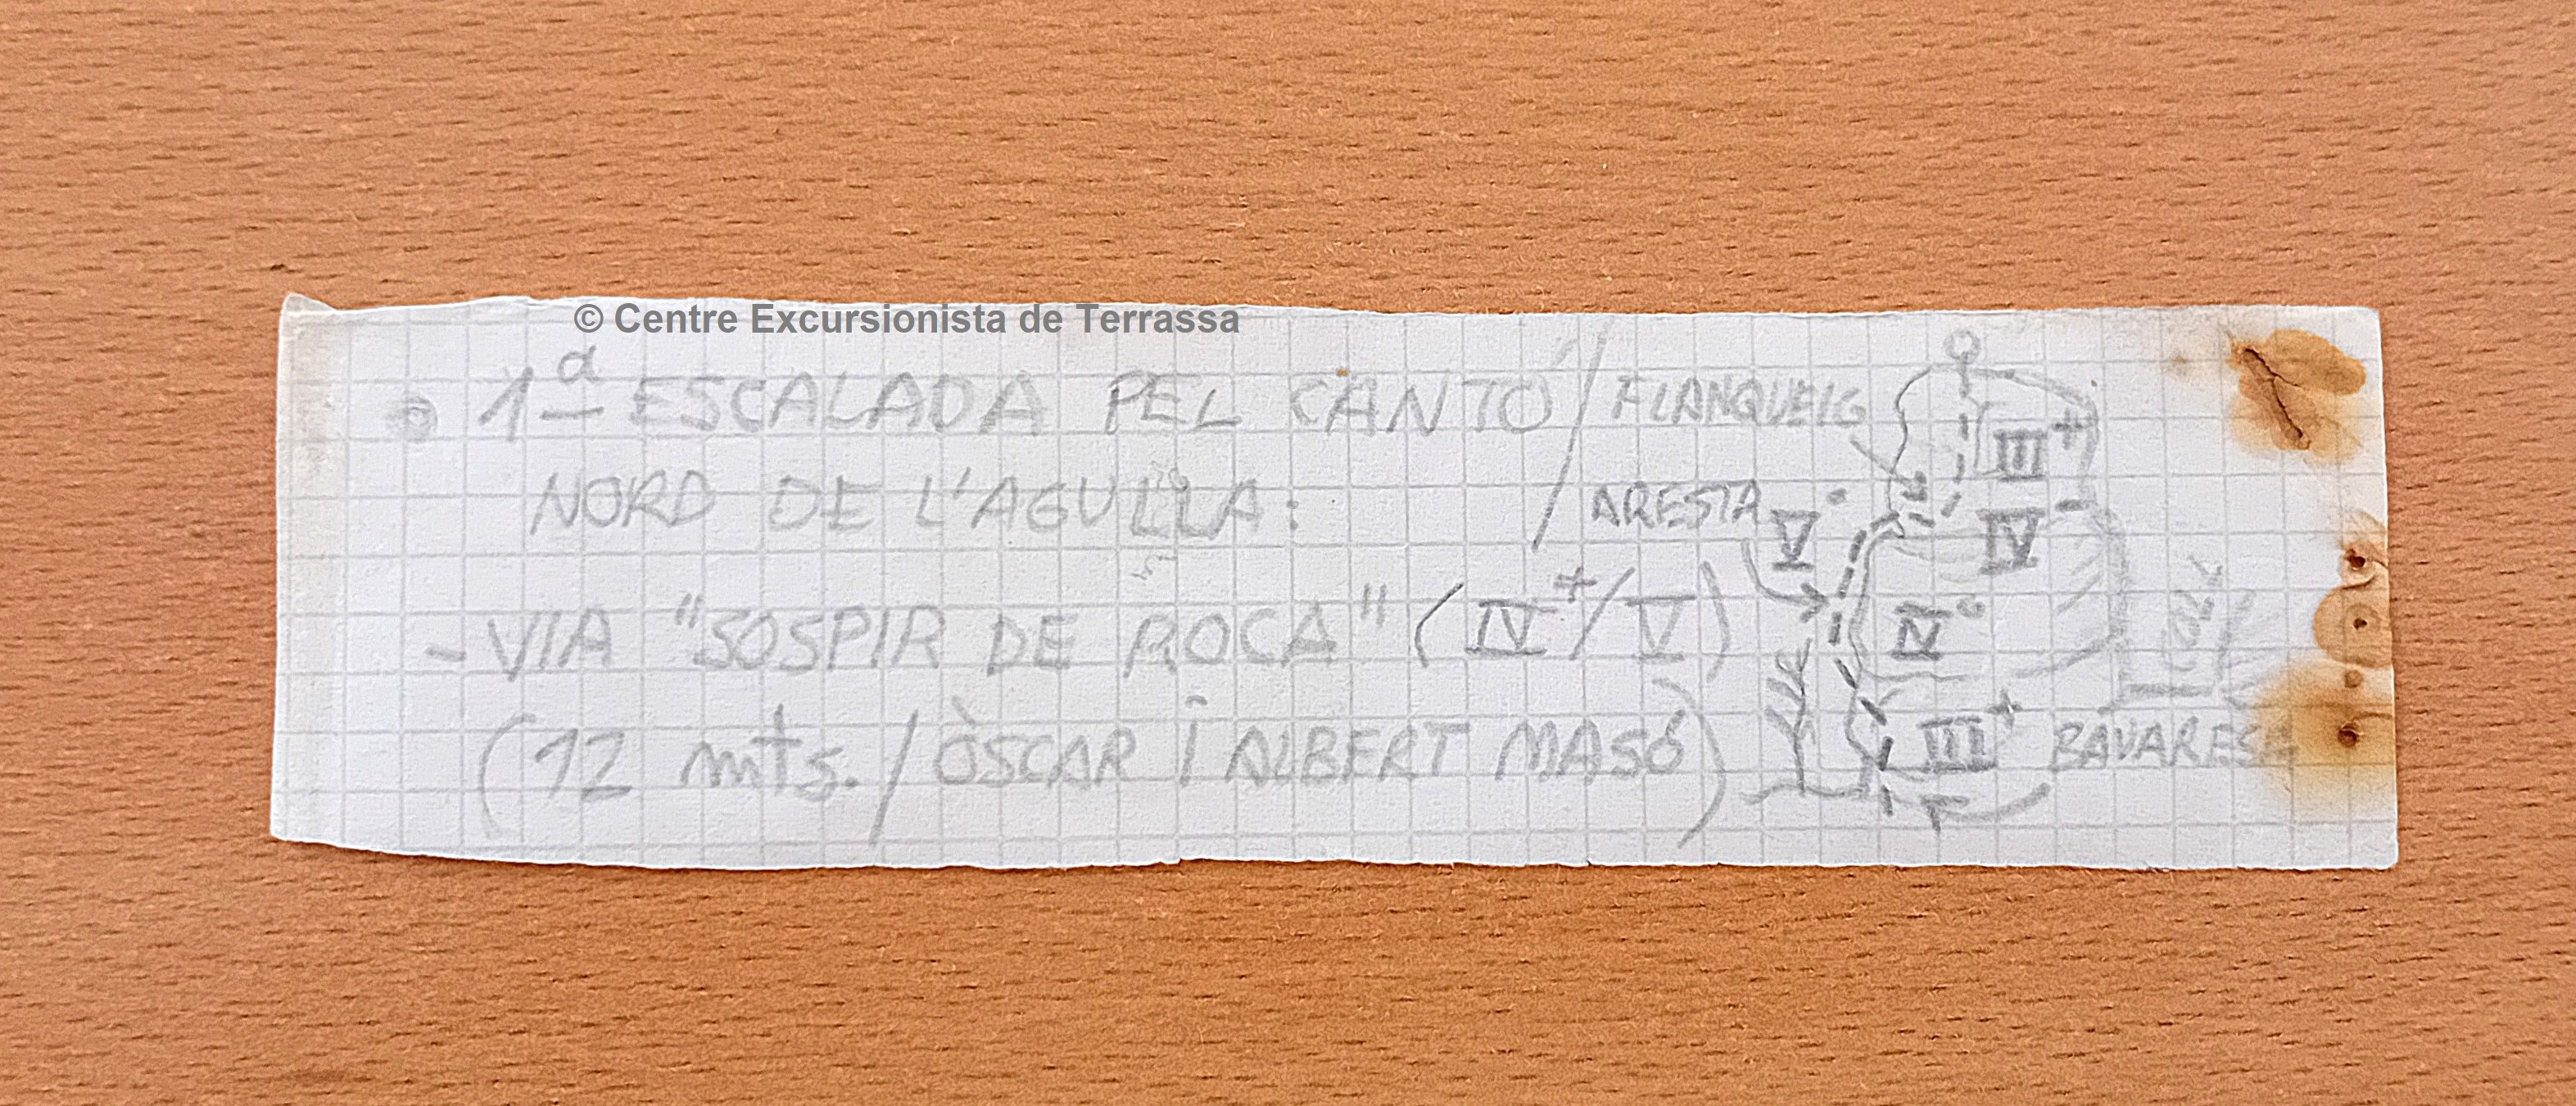 © Centre Excursionista de Terrassa
1ª ESCALADA PEL CANTÓ /
NORD DE L'AGULLA:
- VIA "SOSPIR DE ROCA" (IV+/V)
(12 mts. / ÒSCAR i ALBERT MASÓ)
FLANQUEIG
III+
ARESTA V°
IV
IV°
COLL
III+ BAVARESA